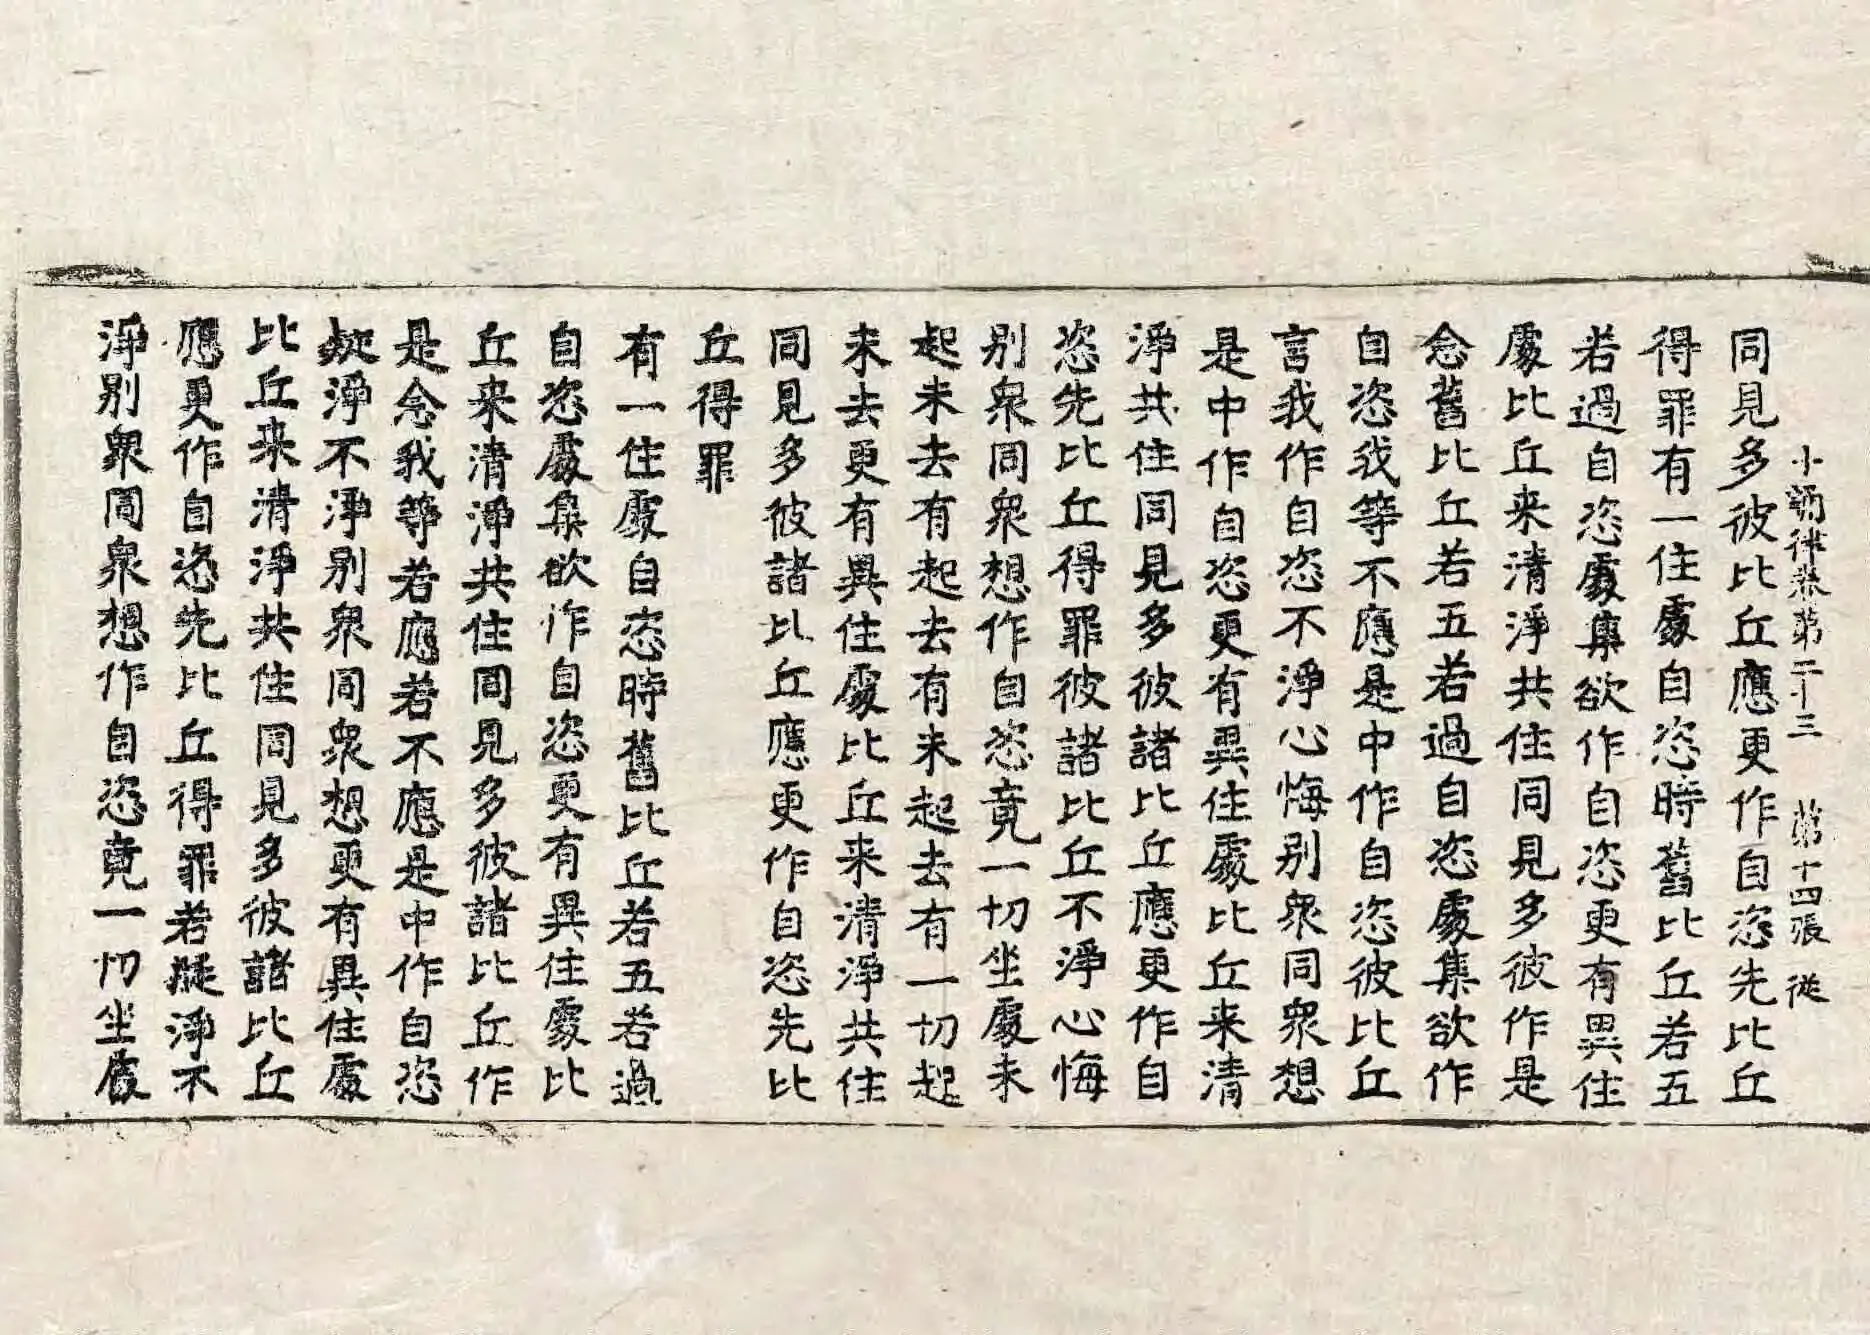 小誦律卷第二十三 第十四張 従
同見多彼比丘應更作自恣先比丘
得罪有一住處自恣時舊比丘若五
若過自恣處集欲作自恣更有異住
處比丘来清淨共住同見多彼作是
念舊比丘若五若過自恣處集欲作
自恣我等不應是中作自恣彼比丘
言我作自恣不淨心悔别衆同衆想
是中作自恣更有異住處比丘来清
淨共住同見多彼諸比丘應更作自
恣先比丘得罪彼諸比丘不淨心悔
别衆同衆想作自恣竟一切坐處未
起未去有起去有未起去有一切起
未去更有異住處比丘来清淨共住
同見多彼諸比丘應更作自恣先比
丘得罪
有一住處自恣時舊比丘若五若過
自恣處集欲作自恣更有異住處比
丘来清淨共住同見多彼諸比丘作
是念我等若應若不應是中作自恣
疑淨不淨别衆同衆想更有異住處
比丘来清淨共住同見多彼諸比丘
應更作自恣先比丘得罪若疑淨不
淨别衆同衆想作自恣竟一切坐處